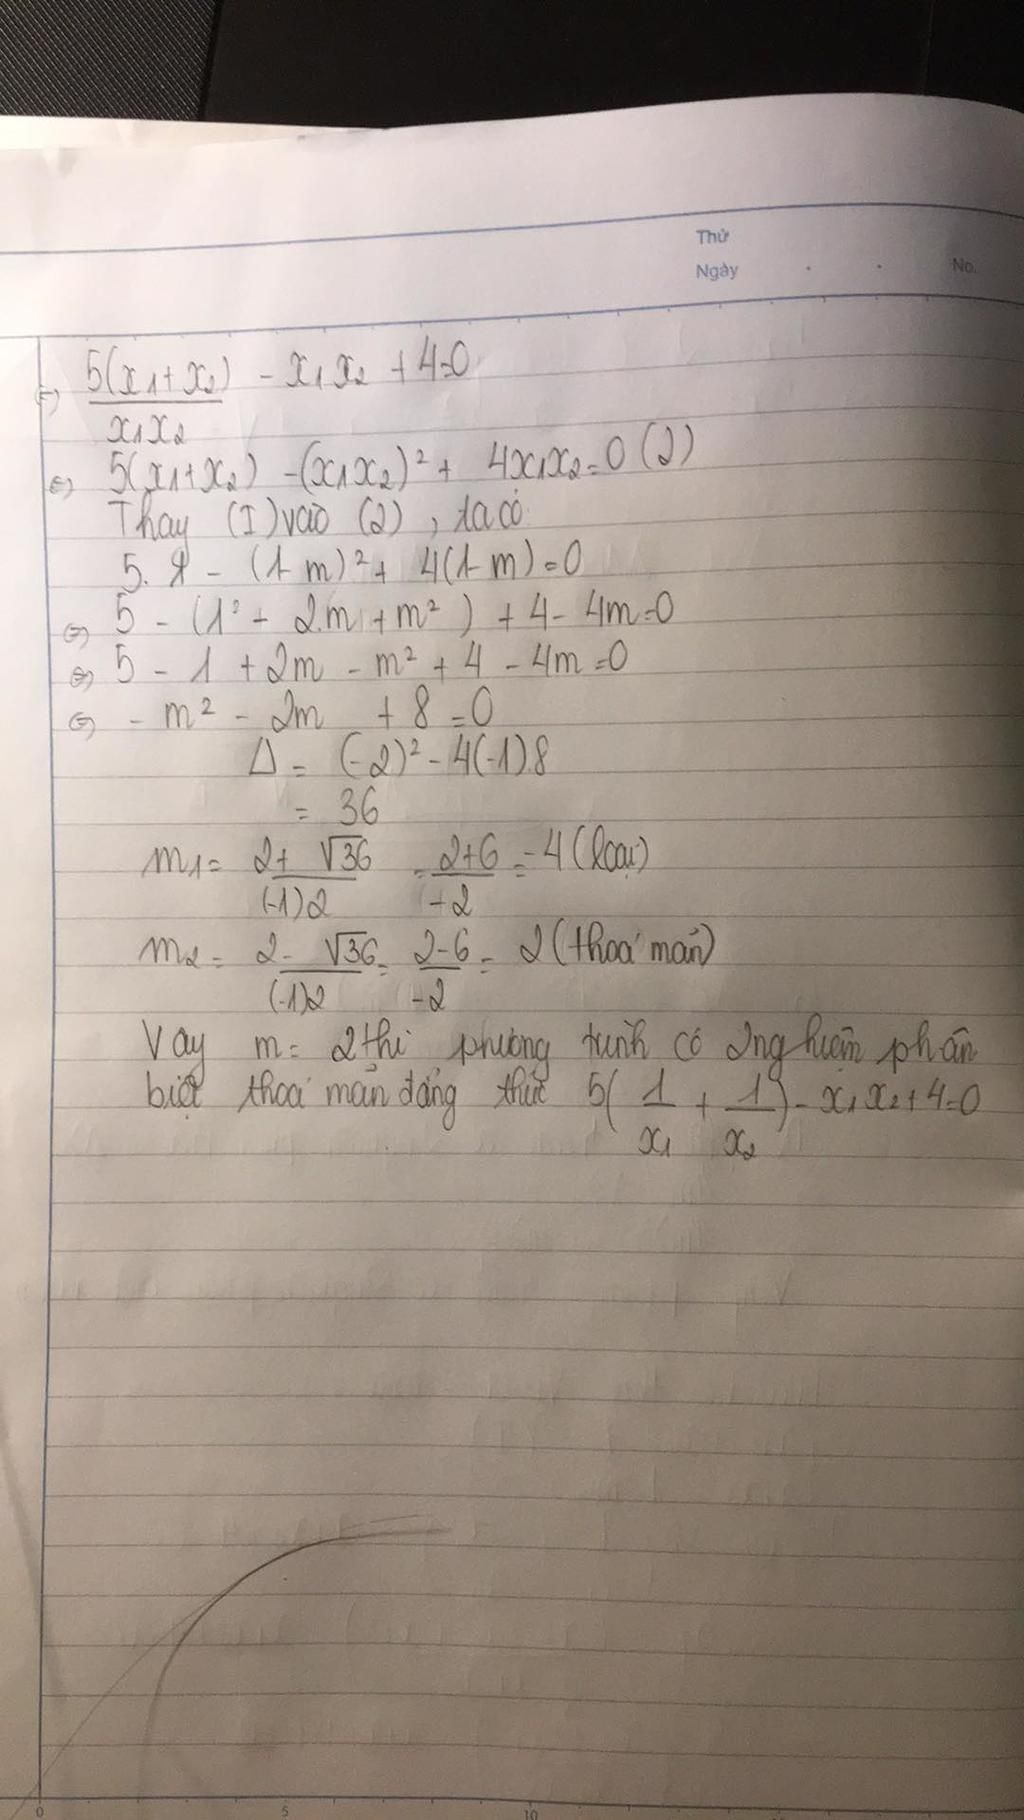 Thứ
Ngày . . No.
⇔ 5(x₁+x₂)/x₁x₂ - x₁x₂ + 4=0
⇔ 5(x₁+x₂) -(x₁x₂)² + 4x₁x₂=0 (2)
Thay (I) vào (2), ta có
5. 1 - (1-m)² + 4(1-m)=0
⇔ 5 - (1² - 2.m + m²) + 4 - 4m=0
⇔ 5 - 1 + 2m - m² + 4 - 4m=0
⇔ - m² - 2m + 8 = 0
Δ = (-2)² - 4(-1).8
= 36
m₁= 2+ √36/(-1)2 = 2+6/-2 = -4 (loại)
m₂= 2- √36/(-1)2 = 2-6/-2 = 2 (thoả mãn)
Vậy m= 2 thì phương trình có 2 nghiệm phân
biệt thoả mãn đẳng thức 5(1/x₁ + 1/x₂) - x₁x₂+4=0
0 5 10